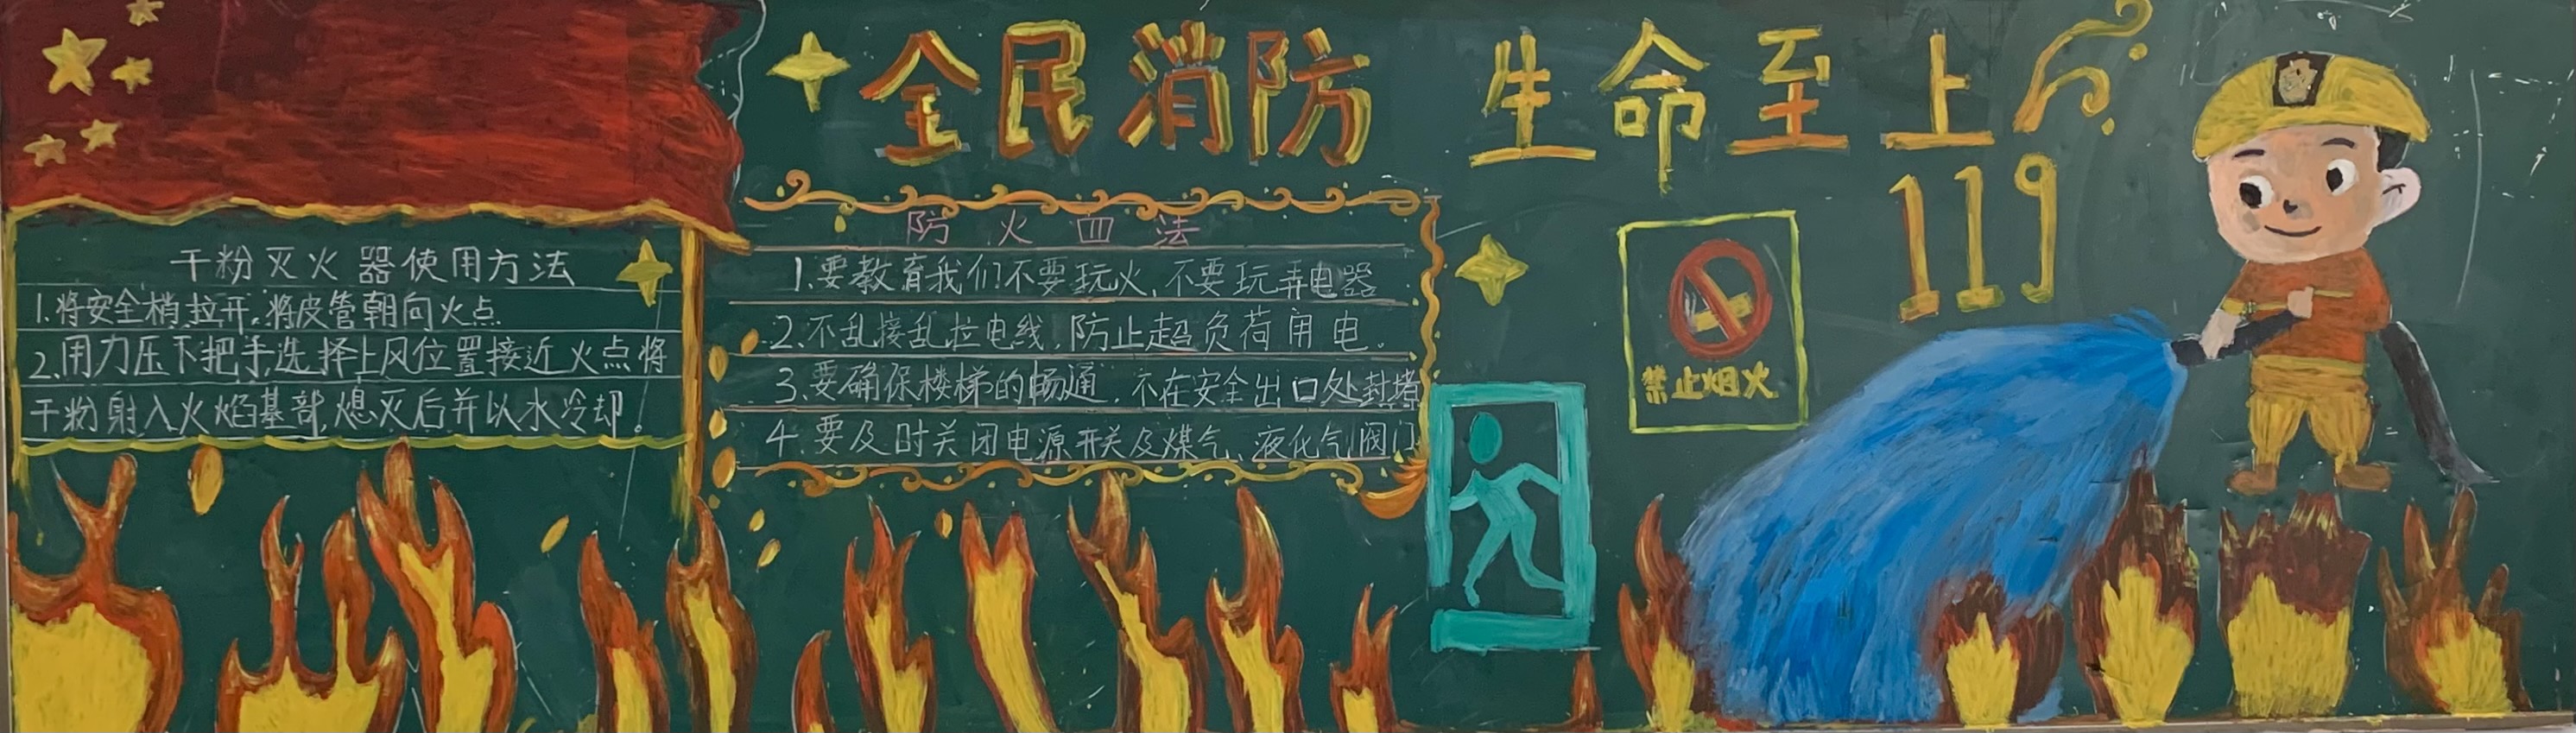 全民消防 生命至上
119
干粉灭火器使用方法
1.将安全梢拉开,将皮管朝向火点
2.用力压下把手,选择上风位置接近火点将
干粉射入火焰基部,熄灭后并以水冷却。
防火四法
1.要教育我们不要玩火,不要玩弄电器
2.不乱接乱拉电线,防止超负荷用电。
3.要确保楼梯的畅通,不在安全出口处封堵
4.要及时关闭电源开关及煤气、液化气阀门
禁止烟火